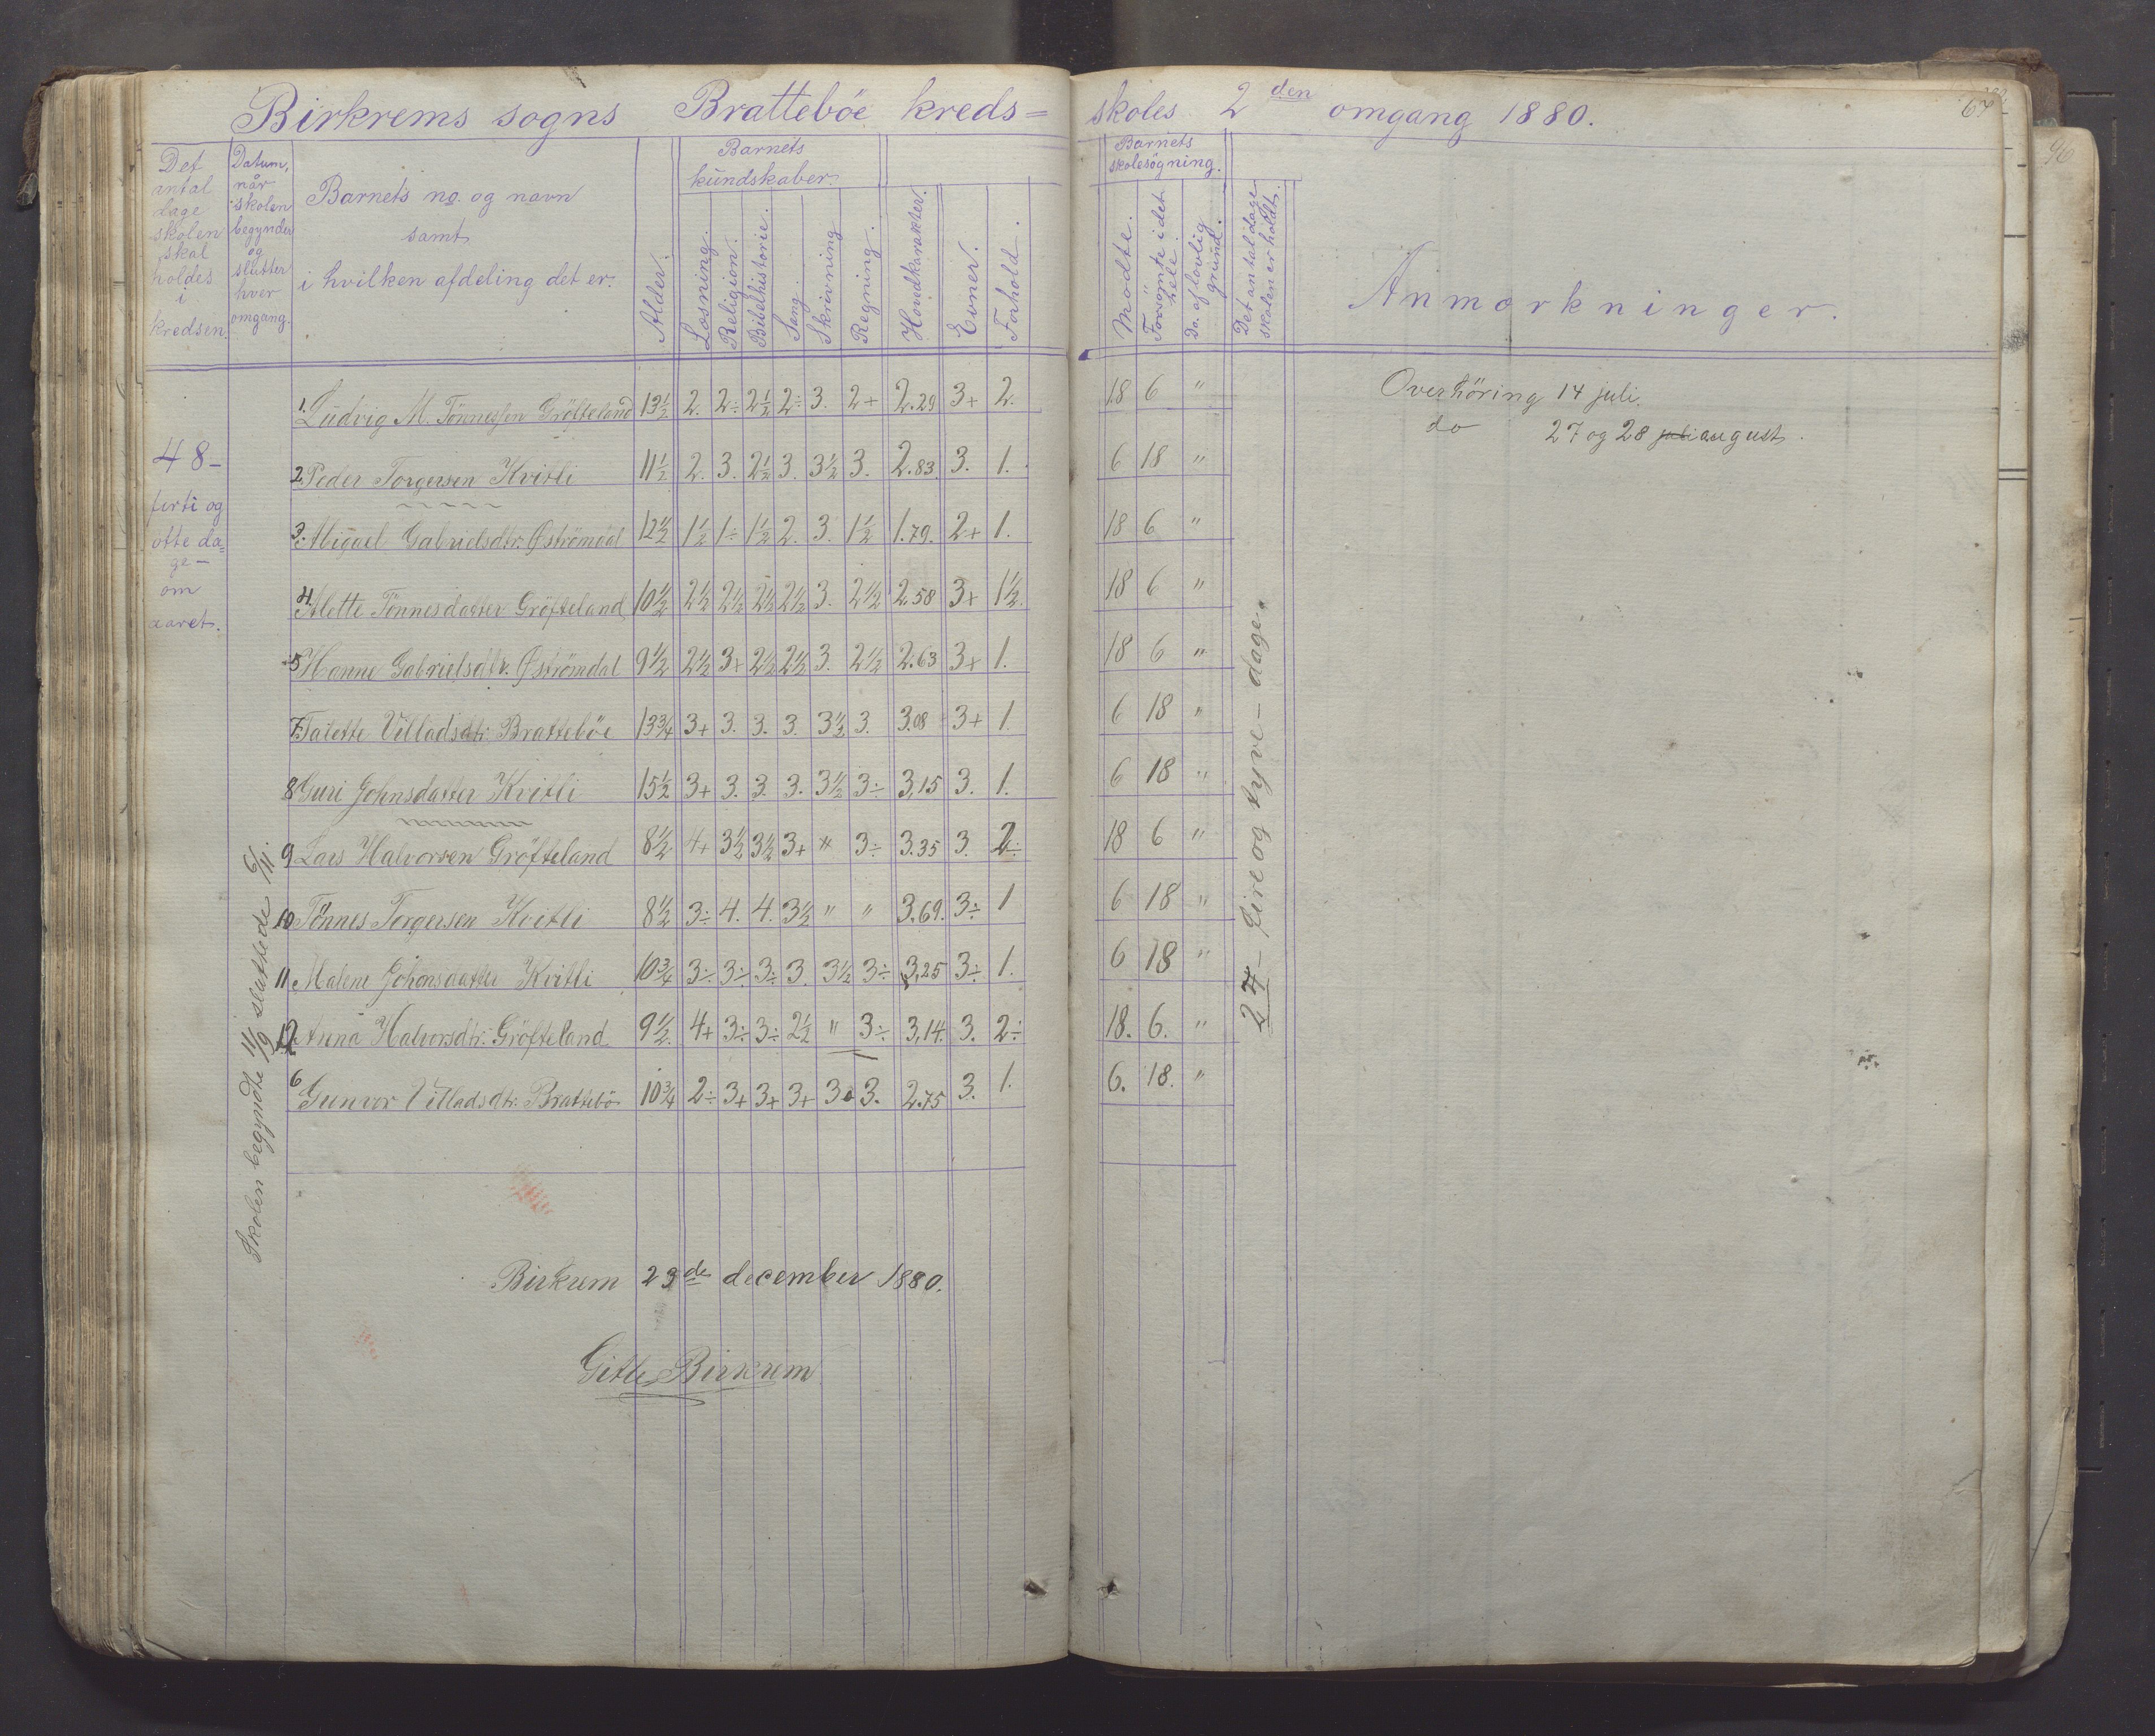 Birkrems sogns Bratteböe kreds= skoles 2den omgang 1880.
67
96
Det antal dage skolen skal holdes i kredsen.
Datum, når skolen begynder og slutter hver omgang.
Barnets no. og navn
samt
i hvilken afdeling det er.
Alder.
Barnets kundskaber.
Læsning.
Religion.
Bibelhistorie.
Sang.
Skrivning
Regning.
Hovedkarakter.
Evner.
Forhold.
Barnets skolesøgning.
Mødte.
Forsømte i det hele.
Do. af lovlig grund.
Det antal dage skolen er holdt.
Anmærkninger.
48-
førti og
otte da=
ge -
om
aaret.
Skolen begyndte 11/9 sluttede 6/11.
1. Ludvig M. Tönnessen Gröfteland 13½ 2. 2÷ 2½ 2÷ 3. 2+ 2.29 3+ 2. 18 6 "
2 Peder Torgersen Kvitli 11½ 2. 3. 2½ 3. 3½ 3. 2.83. 3. 1. 6 18 "
3. Abigael Gabrielsdtr. Øströmdal 12½ 1½ 1÷ 1½ 2. 3. 1½ 1.79. 2+ 1. 18 6 "
4. Alette Tönnesdatter Gröfteland 10½ 2½ 2½ 2½ 2½ 3. 2½ 2.58 3+ 1½. 18 6 "
5 Hanne Gabrielsdtr. Øströmdal 9½ 2½ 3+ 2½ 2½ 3. 2½ 2.63 3+ 1. 18 6 "
7. Talette Villadsdtr: Bratteböe 13¾ 3+ 3. 3. 3. 3½ 3. 3.08 3+ 1 6 18 "
8 Guri Johnsdatter Kvitli 15½ 3+ 3. 3. 3. 3½ 3÷ 3,15 3. 1. 6 18 "
9 Lars Halvorsen Gröfteland 8½ 4+ 3½ 3½ 3+ " 3÷ 3.35 3. 2÷ 18 6 "
10 Tönnes Torgersen Kvitli 8½ 3÷ 4. 4. 3½ " " 3.69. 3÷ 1 6 18 "
11 Malene Johansdatter Kvitli 10¾ 3÷ 3÷ 3÷ 3. 3½ 3÷ 3,25 3÷ 1. 6 18 "
12 Anna Halvorsdtr: Gröfteland 9½. 4+ 3÷ 3÷ 2½ " 3÷ 3,14. 3. 2÷ 18. 6. "
6 Gunvor Villadsdtr: Brattebö 10¾ 2÷ 3+ 3+ 3+ 3. 3. 2.75 3. 1. 6. 18. "
24 - fire og tyve - dage.
Overhöring 14 juli.
do 27 og 28 juli august.
Birkrem 23de december 1880.
Gitle Birkrem